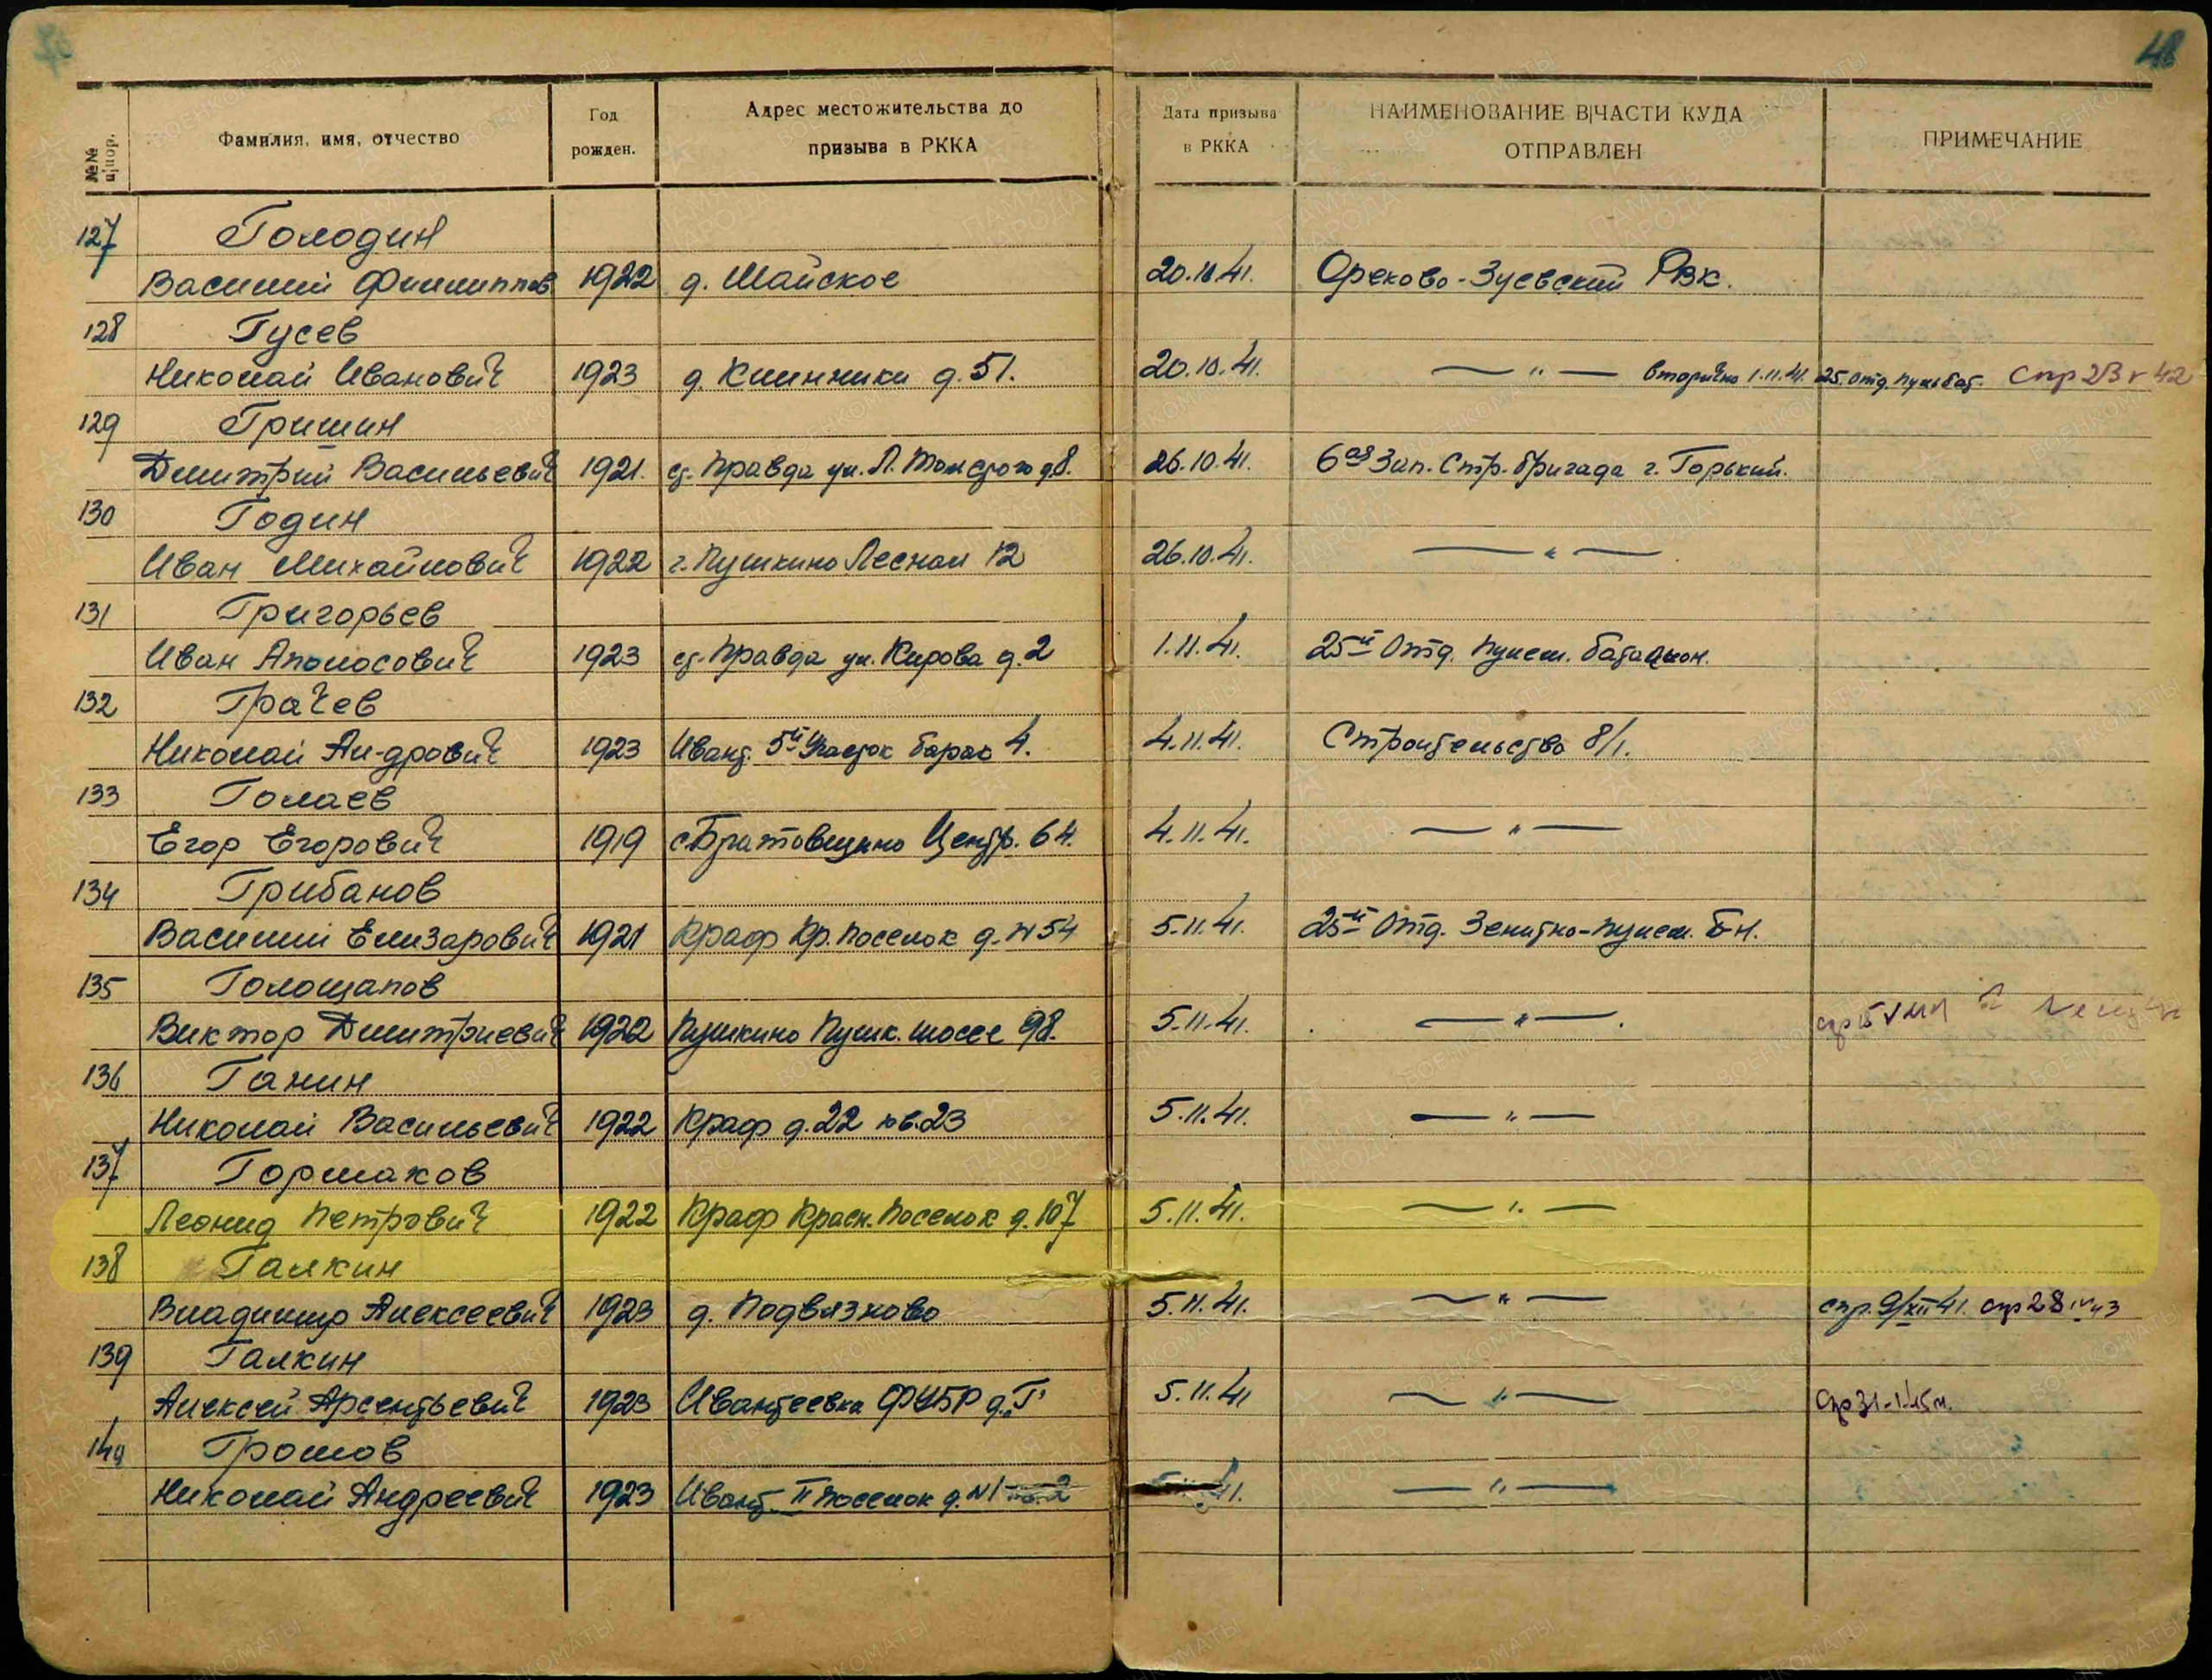 48
№№ п|пор. Фамилия, имя, отчество Год рожден. Адрес местожительства до призыва в РККА Дата призыва в РККА НАИМЕНОВАНИЕ В|ЧАСТИ КУДА ОТПРАВЛЕН ПРИМЕЧАНИЕ
127 Голодин
Василий Филиппов 1922 д. Майское 20.10.41. Орехово-Зуевский РВК.
128 Гусев
Николай Иванович 1923 д. Клинники д. 51. 20.10.41. — " — вторично 1.11.41. 25. отд. пул. бат. спр 23 V 42
129 Гришин
Дмитрий Васильевич 1921. ст. Правда ул. Л. Толстого д. 8. 26.10.41. 6ая Зап. Стр. бригада г. Горький.
130 Годин
Иван Михайлович 1922 г. Пушкино Лесная 12 26.10.41. — " —
131 Григорьев
Иван Аполосович 1923 ст. Правда ул. Кирова д. 2 1.11.41. 25й Отд. Пулем. батальон.
132 Грачев
Николай Ан-дрович 1923 Ивант. 5й Участок барак 4. 4.11.41. Строительство 8/1.
133 Голаев
Егор Егорович 1919 с. Братовщино Центр. 64. 4.11.41. — " —
134 Грибанов
Василий Елизарович 1921 Краф Кр. Поселок д. № 54 5.11.41. 25й Отд. Зенитно-Пулем. Б-н.
135 Голощапов
Виктор Дмитриевич 1922 Пушкино Пушк. шоссе 98. 5.11.41. — " — спр 15 V
136 Ганин
Николай Васильевич 1922 Краф д. 22 кв. 23 5.11.41. — " —
137 Горшаков
Леонид Петрович 1922 Краф Красн. Поселок д. 107 5.11.41. — " —
138 Галкин
Владимир Алексеевич 1923 д. Подвязново 5.11.41. — " — спр. 9/XII 41. спр 28 IV 43
139 Галкин
Алексей Арсентьевич 1923 Ивантеевка ФУБР д. „Г" 5.11.41 — " — спр 31-1-45 г.
140 Громов
Николай Андреевич 1923 Ивант. II поселок д. № 1 41. — " —